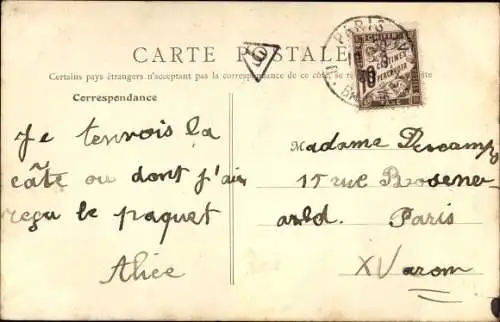 CARTE POSTALE
Certains pays étrangers n'acceptant pas la correspondance de ce côté, se re poste
Correspondance
PARIS
A PERCEVOIR
10
CENTIMES
TAXE
Je tenvois la
câte ou dont j'ai
reçu le paquet
Alice
Madame Descamps
15 rue
Paris
XV arom